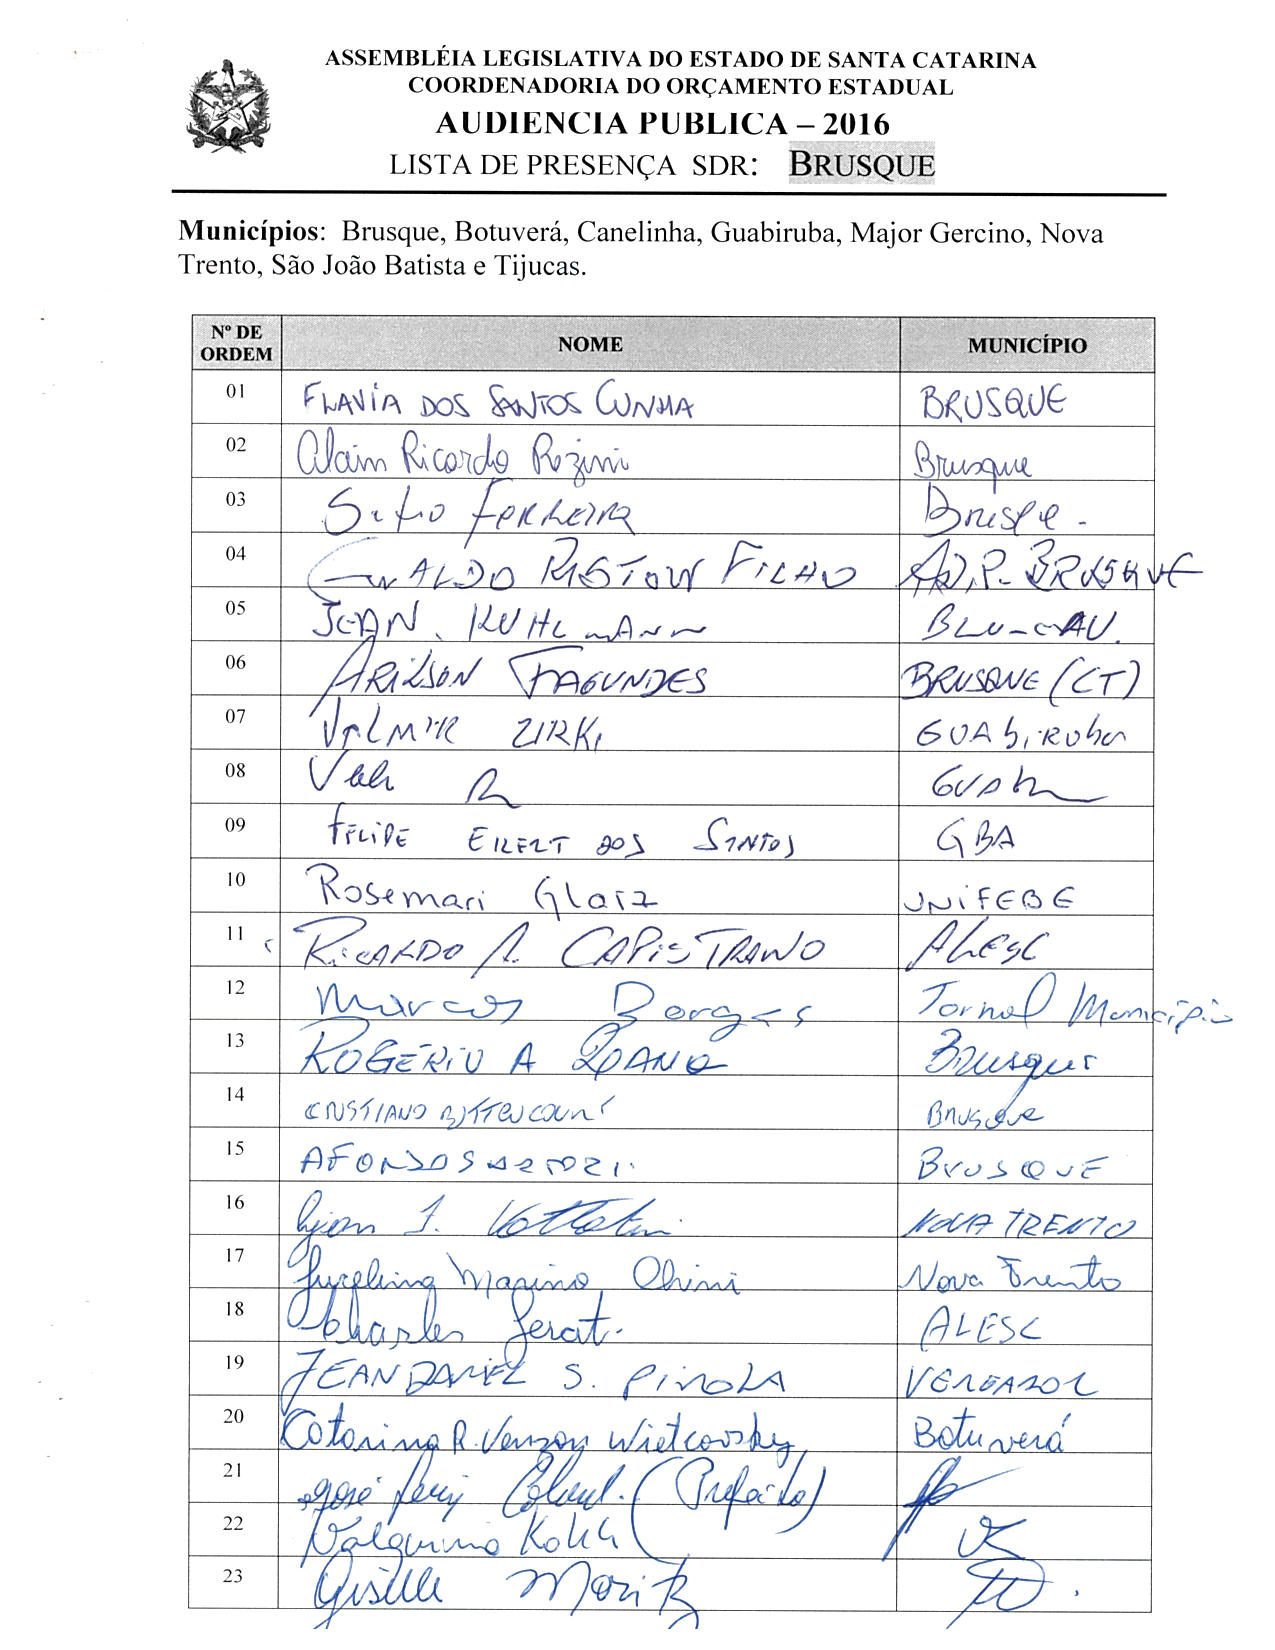 ASSEMBLÉIA LEGISLATIVA DO ESTADO DE SANTA CATARINA
COORDENADORIA DO ORÇAMENTO ESTADUAL
AUDIENCIA PUBLICA – 2016
LISTA DE PRESENÇA SDR: BRUSQUE
Municípios: Brusque, Botuverá, Canelinha, Guabiruba, Major Gercino, Nova
Trento, São João Batista e Tijucas.
Nº DE ORDEM NOME MUNICÍPIO
01 FLAVIA DOS SANTOS CUNHA BRUSQUE
02 Alain Ricardo Rozini Brusque
03 FERREIRA
04 RISTOW FILHO BRUSQUE
05 JEAN KUHLMANN
06 ARILSON FAGUNDES BRUSQUE (CT)
07 VALMIR ZIRKE GUABIRUBA
08
09 FELIPE EILERT DOS SANTOS GBA
10 Rosemari Glatz UNIFEBE
11 RICARDO A. CAPISTRANO ALESC
12 Marcos Borges Jornal Município
13 ROGÉRIO A Brusque
14 CRISTIANO BITTENCOURT BRUSQUE
15 AFONSO BRUSQUE
16 NOVA TRENTO
17 Marino Nova Trento
18 Charles ALESC
19 JEAN DANIEL S. PIROLA VEREADOR
20 Catarina R. Venzon Wietcovsky Botuverá
21 José Luiz (Prefeito)
22
23 Giselle Moritz